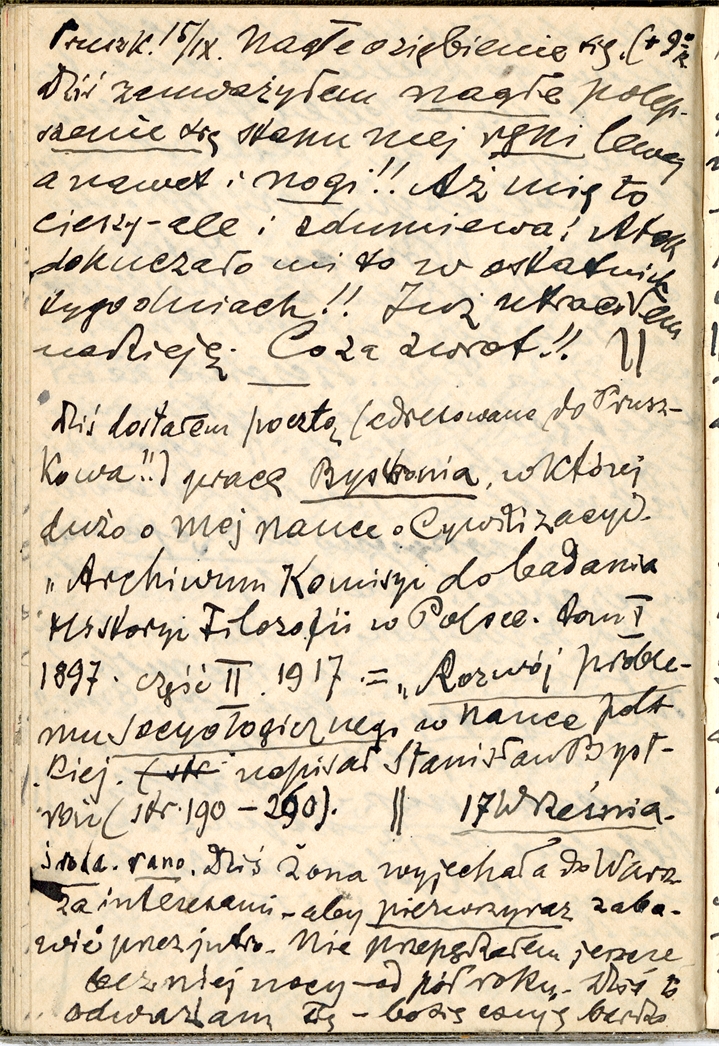 Pruszk. 15/IX. Nagłe oziębienie się. (+9°R
Dziś zauważyłem nagłe polep-
szenie się stanu mej ręki lewej
a nawet i nogi!! Aż mię to
cieszy - ale i zdumiewa! A tak
dokuczało mi to w ostatnich
tygodniach!! Już utraciłem
nadzieję. Co za zwrot!!
Dziś dostałem pocztą (adresowane do Prusz-
kowa!!) pracę Bystronia, w której
dużo o mej nauce o Cywilizacyi.
"Archiwum Komisyi do badania
Historyi Filozofii w Polsce. tom I
1897. część II. 1917. = "Rozwój proble-
mu Socyologicznego w nauce pols-
kiej. (str napisał Stanisław Byst-
roń (str. 190 - 260). || 17 Września.
środa. rano. Dziś Żona wyjechała do Warsz
za interesami - aby pierwszy raz zaba-
wić przez jutro. Nie przepędzałem jeszcze
bez niej nocy - od pół roku. Dziś to
odważam się - bo się czuję bardzo